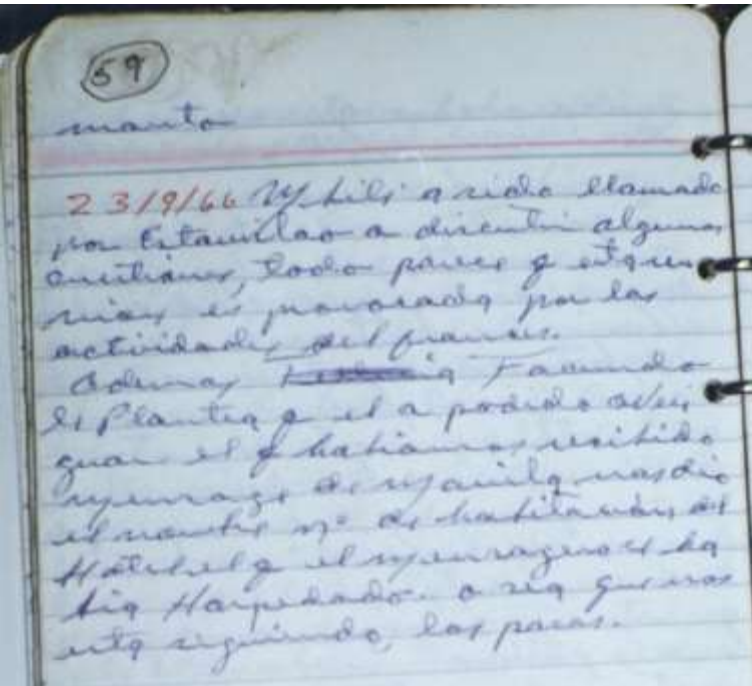 59
manto
23/9/66 Mbili a sido llamado
por Estanislao a discutir algunas
cuestiones, todo parece q esta reu
nion es provocada por las
actividades del frances.
Ademas Facundo
le Plantea q el a podido averi
guar el q habiamos recibido
mensage de Manila nos dio
el nombre nº de habitación del
Hotel el q el mensagero se ha
bia Hospedado. o sea que nos
esta siguiendo, los pasos.